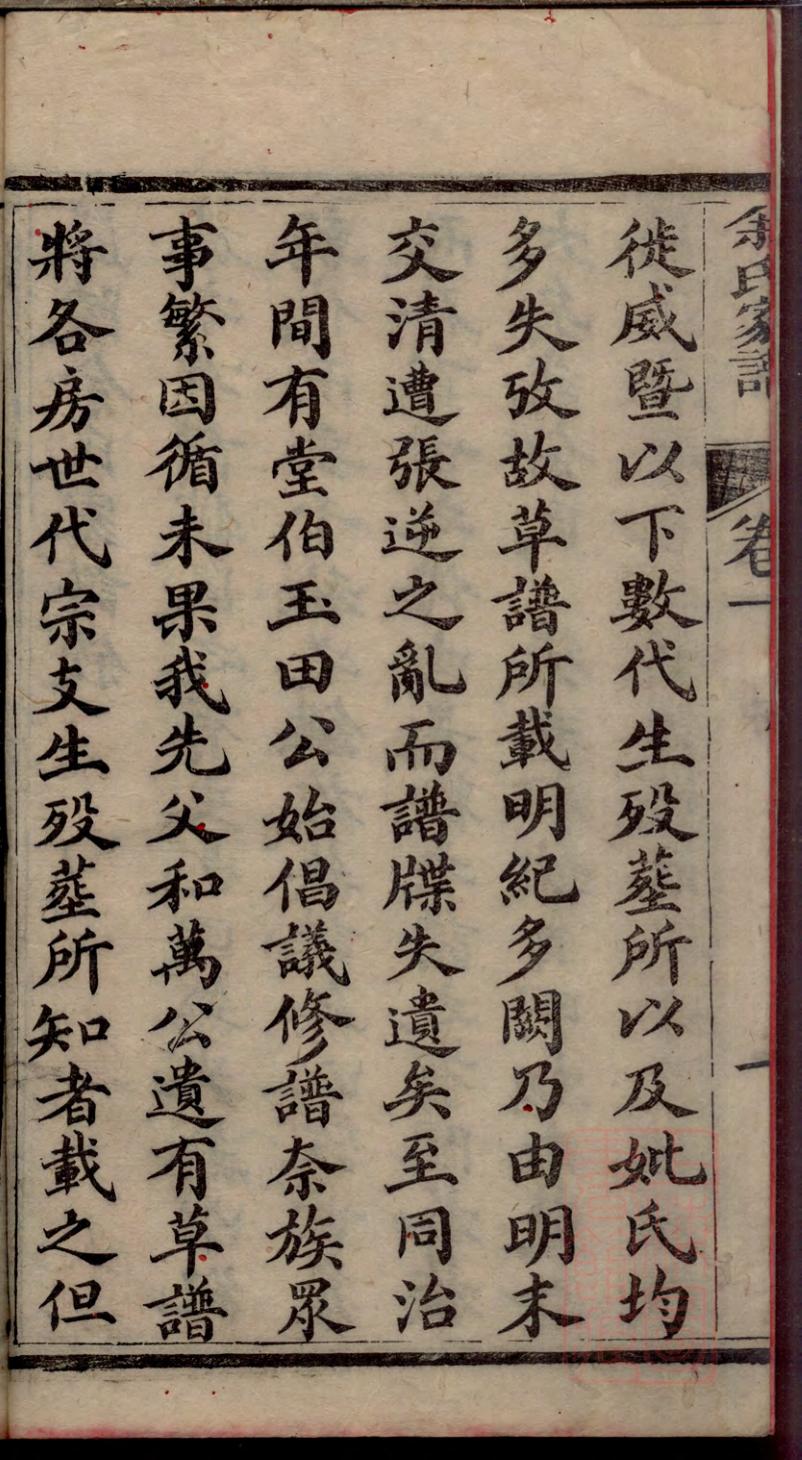 余氏家譜 卷一 一
徙威暨以下數代生歿塟所以及妣氏均
多失攷故草譜所載明紀多闕乃由明末
交清遭張逆之亂而譜牒失遺矣至同治
年間有堂伯玉田公始倡議修譜奈族眾
事繁因循未果我先父和萬公遺有草譜
將各房世代宗支生歿塟所知者載之但